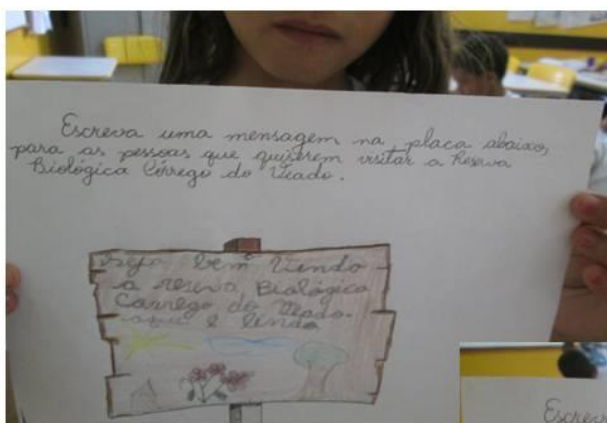 Escreva uma mensagem na placa abaixo,
para as pessoas que quiserem visitar a Reserva
Biológica Córrego do Veado.
seja bem Viendo
a reserva Biológica
Carrego do Veado.
aqui é lindo
Escreva